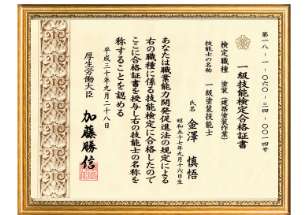 第一八-一-〇六〇-三四-〇〇一四号
一級技能検定合格証書
検定職種 塗装(建築塗装作業)
技能士の名称 一級塗装技能士
氏名 金澤 慎悟
昭和五十七年九月十六日生
あなたは職業能力開発促進法の規定による
右の職種に係る技能検定に合格したので
ここに合格証書を授与し右の技能士の名称を
称することを認める
平成三十年九月二十八日
厚生労働大臣 加藤勝信